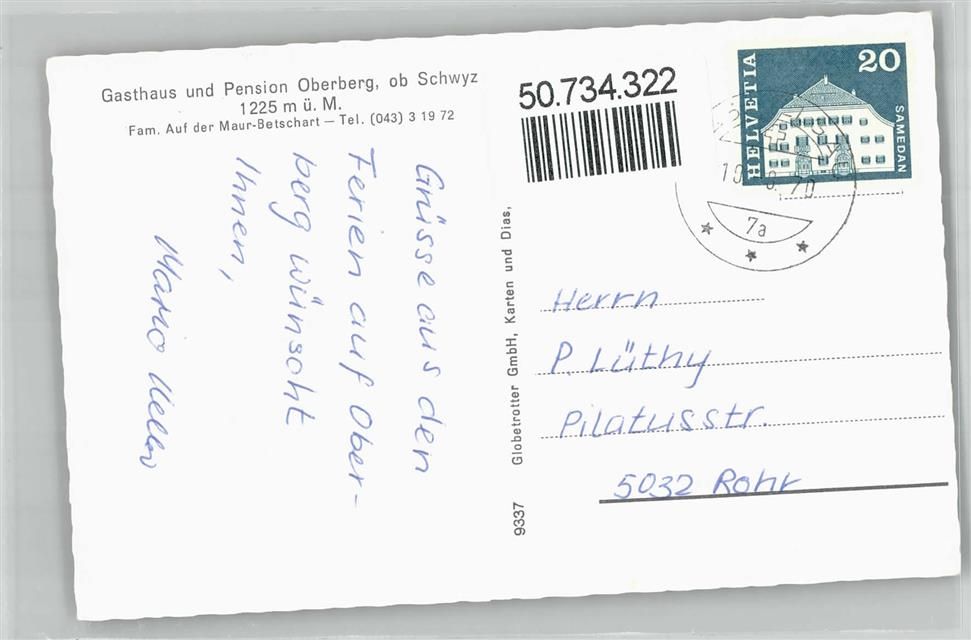 Gasthaus und Pension Oberberg, ob Schwyz
1225 m ü. M.
Fam. Auf der Maur-Betschart — Tel. (043) 3 19 72
Grüsse aus den
Ferien auf Ober-
berg wünscht
Ihnen,
Mario
9337 Globetrotter GmbH, Karten und Dias,
50.734.322
HELVETIA
20
SAMEDAN
7a
Herrn
P. Lüthy
Pilatusstr.
5032 Rohr